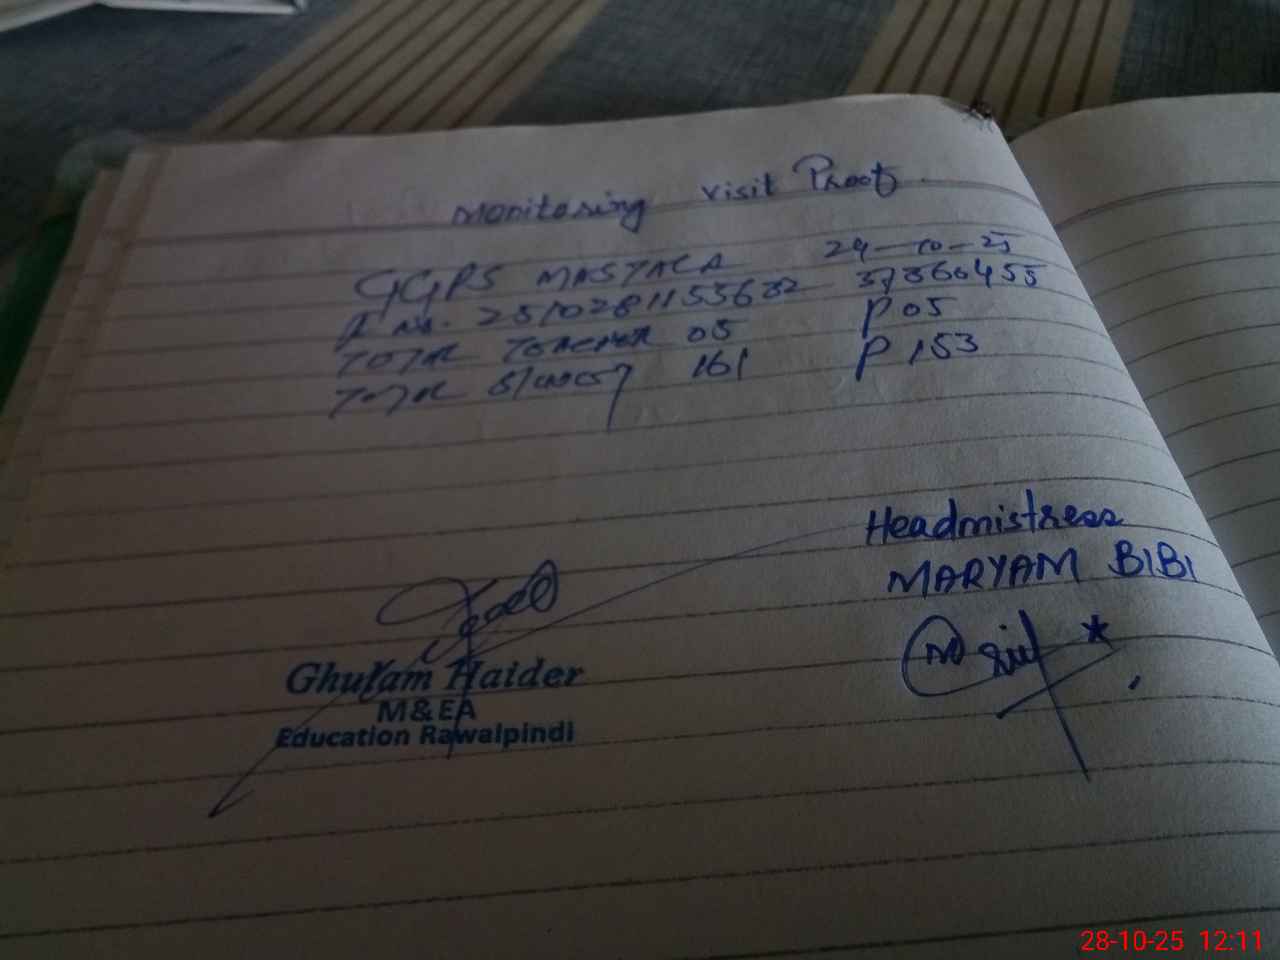 Monitoring visit Proof
GGPS MASYALA 24-10-25
2510281155682 37360455
TOTAL TEACHER 05 P 05
TOTAL 161 P 153
Headmistress
MARYAM BIBI
Ghulam Haider
M&EA
Education Rawalpindi
28-10-25 12:11